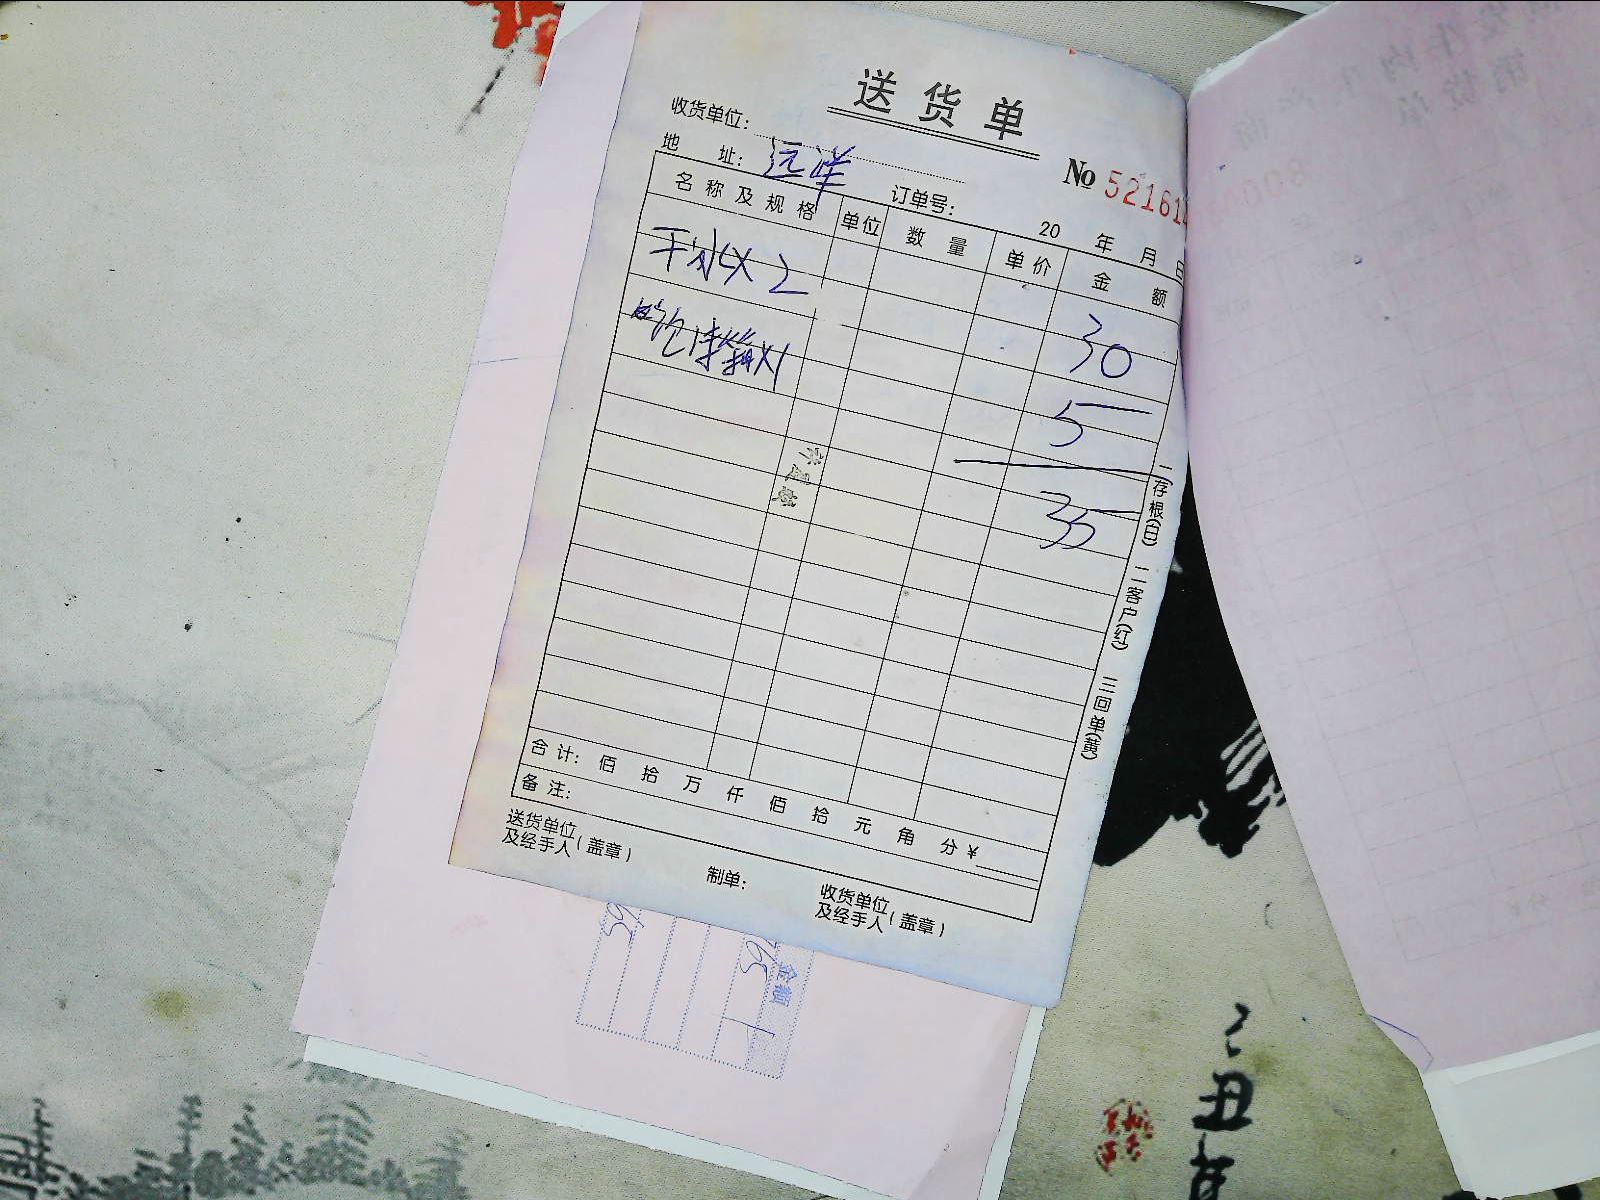 送货单
收货单位:
地 址: 远洋 订单号:
No 52161
20 年 月 日
名称及规格 单位 数量 单价 金额
干冰X2 30
泡沫箱X1 5
35
一存根(白) 二客户(红) 三回单(黄)
合计: 佰 拾 万 仟 佰 拾 元 角 分 ¥
备注:
送货单位及经手人(盖章) 制单: 收货单位及经手人(盖章)
金额
丑